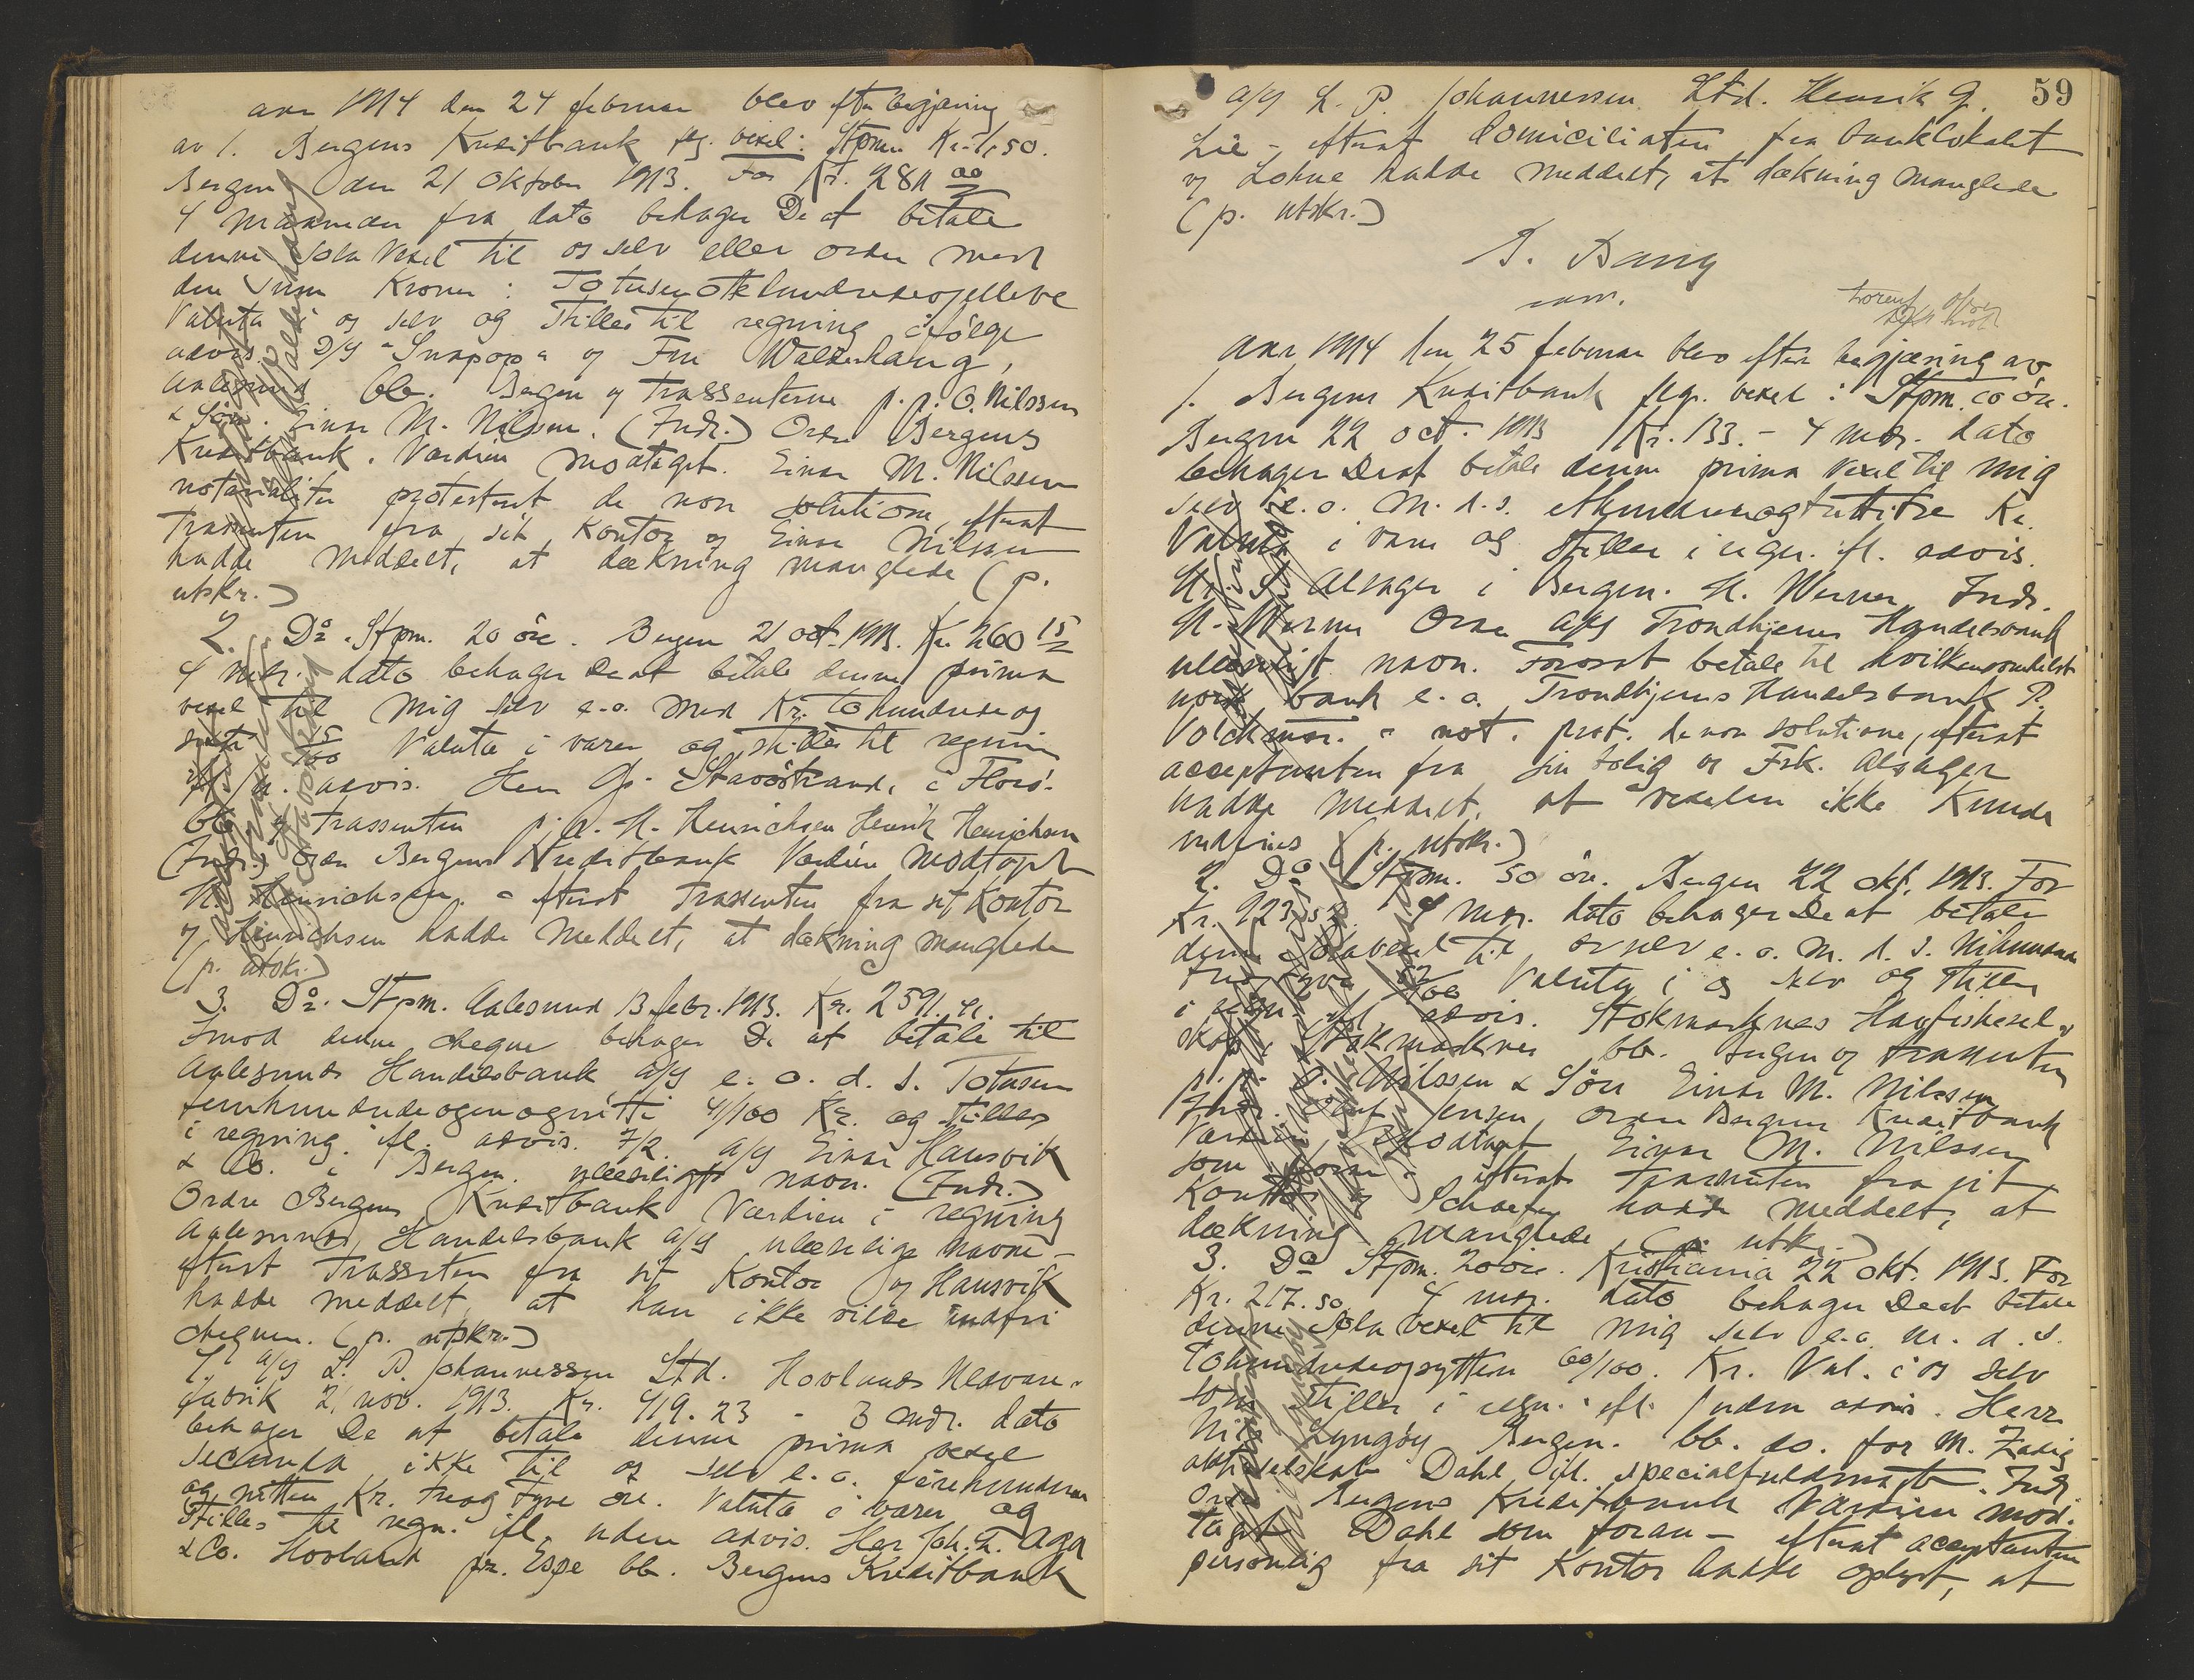 aar 1914 den 24 februar blev efter begjæring
av 1. Bergens Kreditbank flg. vexel: Stpm. Kr. 1,50.
Bergen den 21 Oktober 1913. For Kr. 2811 00
4 maaneder fra dato behager De at betale
denne Sola Vexel til os selv eller ordre med
den Sum Kroner: Totusenottehundredeogelleve
Valuta i os selv og Stilles til regning ifølge
advis. D/S "Snapop" og Fru Walderhaug,
Aalesund bb. Bergen og trassenterne p.p. O. Nilssen
& Søn. Einar M. Nilssen. (Indr.) Ordre Bergens
Kreditbank. Værdien modtaget. Einar M. Nilssen
notarialiter protestert de non solutione, efterat
Trassenten fra sit Kontor og Einar Nilssen
hadde meddelt, at dækning manglede (p.
utskr.)
2. Do. Stpm. 20 øre. Bergen 21 oct. 1913. Kr. 260 15
4 mdr. dato behager De at betale denne prima
vexel til mig selv e.o. med Kr. tohundrede og
seksti 15/100 Valuta i varer og stilles til regning
advis. Herr G. Stavøstrand, i Florø.
bb. og trassenten p.p. H. Henrichsen Henrik Henrichsen
(Indr.) Ordre Bergens Kreditbank Værdien modtaget
H. Henrichsen. - efterat Trassenten fra sit Kontor
og Henrichsen hadde meddelt, at dækning manglede
(p. utskr.)
3. Do. Stpm. Aalesund 13 febr. 1913. Kr. 2591.41.
Imod denne cheque behager De at betale til
Aalesunds Handelsbank A/S e. o. d. S. Totusen
femhundredeogenognitti 41/100 Kr. og stilles
i regning ifl. advis. 7/2. A/S Einar Hausvik
& Co. i Bergen. ulæseligt navn. (Indr.)
Ordre Bergens Kreditbank Værdien i regning
Aalesunds Handelsbank A/S ulæselige navne -
efterat Trassaten fra sit Kontor og Hausvik
hadde meddelt, at han ikke vilde indfri
chequen. (p. utskr.)
4. A/S L. P. Johannessen Ltd. Hovlands Uldvare-
fabrik 21 nov. 1913. Kr. 419.23 - 3 mdr. dato
behager De at betale denne prima vexel
secunda ikke til os selv e.o. firehundrede
og nitten Kr. treogtyve øre. Valuta i varer og
Stilles til regn. ifl. uden advis. Herr Joh. H. Aga
& Co. Hovland pr. Espe bb. Bergens Kreditbank
59
A/S L. P. Johannessen Ltd. Henrik G.
Lie - efterat domiciliaten fra banklokalet
og Lohne hadde meddelt, at dækning manglede
(p. utskr.)
B. Bang
aar 1914 den 25 februar blev efter begjæring av
1. Bergens Kreditbank flg. vexel: Stpm. 20 øre.
Bergen 22 oct. 1913 Kr. 133.- 4 mdr. dato
behager De at betale denne prima vexel til mig
selv e.o. m. d. s. ethundredeogtrettitre Kr.
Valuta i varer og stilles i regn. ifl. advis.
Hr. S. Alsager i Bergen. H. Werner Indr.
H. Werner Ordre A/S Trondhjems Handelsbank
ulæseligt navn. Foranst betale til hvilkensomhelst
norsk bank e.o. Trondhjems Handelsbank P.
Volckmar. - not. prot. de non solutione, efterat
acceptanten fra sin bolig og Frk. Alsager
hadde meddelt, at vexelen ikke Kunde
indfries (p. utskr.)
2. Do Stpm. 50 øre. Bergen 22 okt. 1913. For
Kr. 923.52 4 mdr. dato behager De at betale
denne Solavexel til os selv e.o. m. d. s. Nihundrede
treogtyve 52/100 Valuta i os selv og stilles
i regn. ifl. advis. Stokmarknes Havfiskesel-
skap, Stokmarknes bb. Bergen og trassenten
p.p. O. Nilssen & Søn Einar M. Nilssen
Indr. Jensen, ordre Bergens Kreditbank
Værdien modtaget Einar M. Nilssen
som foran - efterat Trassenten fra sit
Kontor og hadde meddelt, at
dækning manglede (p. utskr.)
3. Do Stpm. 20 øre. Kristiania 22 okt. 1913. For
Kr. 217.60 4 mdr. dato behager De at betale
denne Sola vexel til mig selv e.o. m. d. s.
Tohundredeogsytten 60/100. Kr. Val. i os selv
som stilles i regn. ifl. uden advis. Herr
Nils Lyngøy Bergen. bb. do. for M. Zadig
aktieselskab Dahl ifl. specialfuldmagt. Indr.
Ordre Bergens Kreditbank Værdien mod-
taget Dahl som foran - efterat acceptanten
personlig fra sit Kontor hadde oplyst, at